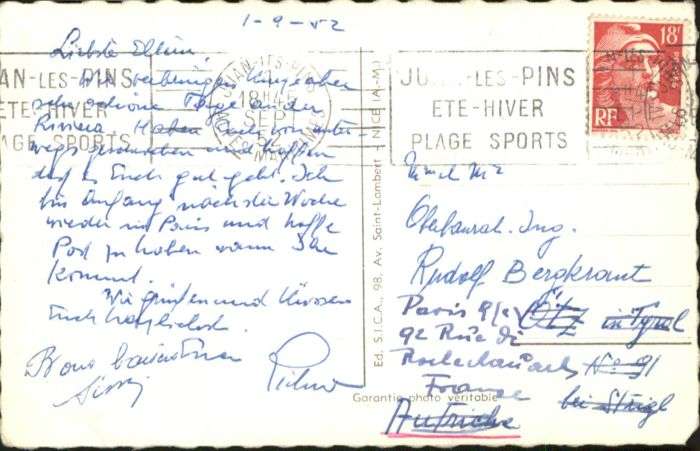 1-9-52
Liebste Eltern!
wir verbringen
sehr schöne Tage an der
Riviera. Haben Euch von unter-
wegs geschrieben und hoffen
daß es Euch gut geht. Ich
bin Anfang nächster Woche
wieder in Paris und hoffe
Post zu haben wann Ihr
kommt.
Wir grüßen und küssen
Euch herzlichst.
Bons baisers
JUAN-LES-PINS
18H
SEP
52
AN-LES-PINS
ETE-HIVER
AGE SPORTS
JUAN-LES-PINS
ETE-HIVER
PLAGE SPORTS
18F
RF
Ed. S.I.C.A., 98, Av. Saint-Lambert - NICE (A.-M.)
Oberbaurat. Ing.
Rudolf Bergkraut
Paris Ötz in Tyrol
92 Rue de
Rochechouart No 91
France bei Steigl
Autriche
Garantie photo véritable